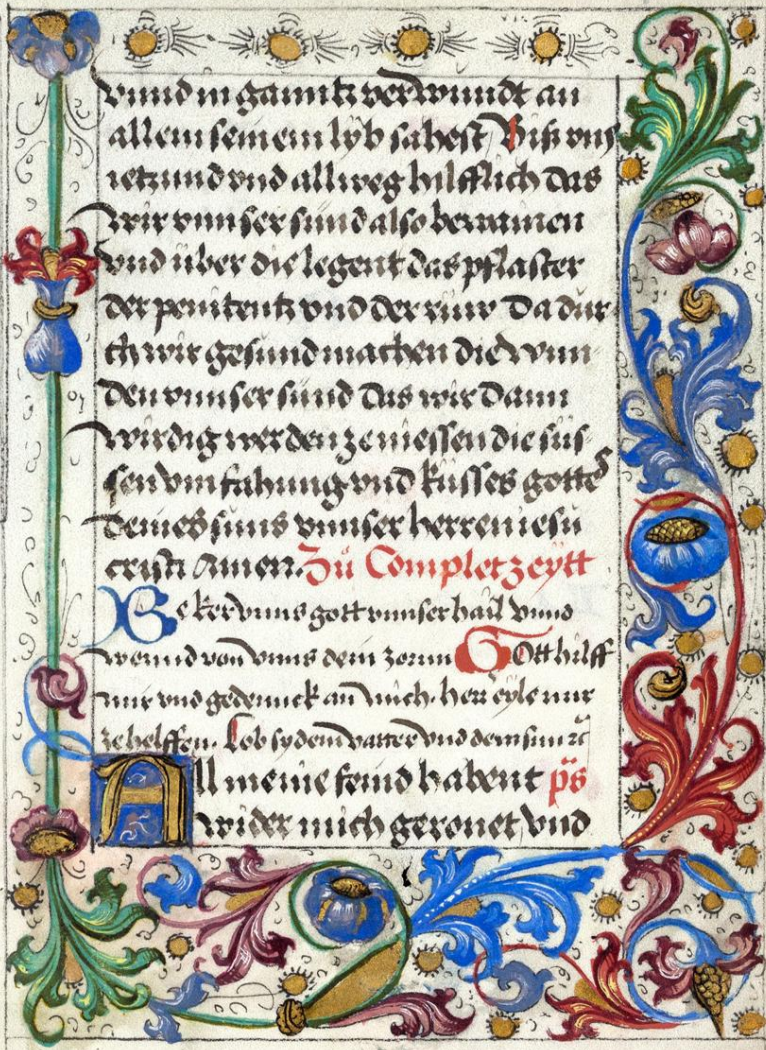 vnnd in ganntz verwundt an
allem seinem lyb sahest Biß vns
ietzund vnd allweg hilfflich das
wir vnnser sünd also bewainen
vnd über die legent das pflaster
der penitentz vnd der ruw Da dur-
ch wir gesund machen die wun-
den vnnser sünd Das wir dann
wirdig werden ze niessen die süs-
sen vmfahung vnd küsses gottes
deines suns vnnser herren iesu
cristi Amen. Zů Completzeytt
Beker vnns gott vnnser hail vnnd
wennd von vnns dein zorn Gott hilff
mir vnd gedennck an mich. herr eyle mir
ze helffen. Lob sy dem vatter vnd dem sun ꝛc
All meine feind habent p̄s
wider mich geronet, vnd